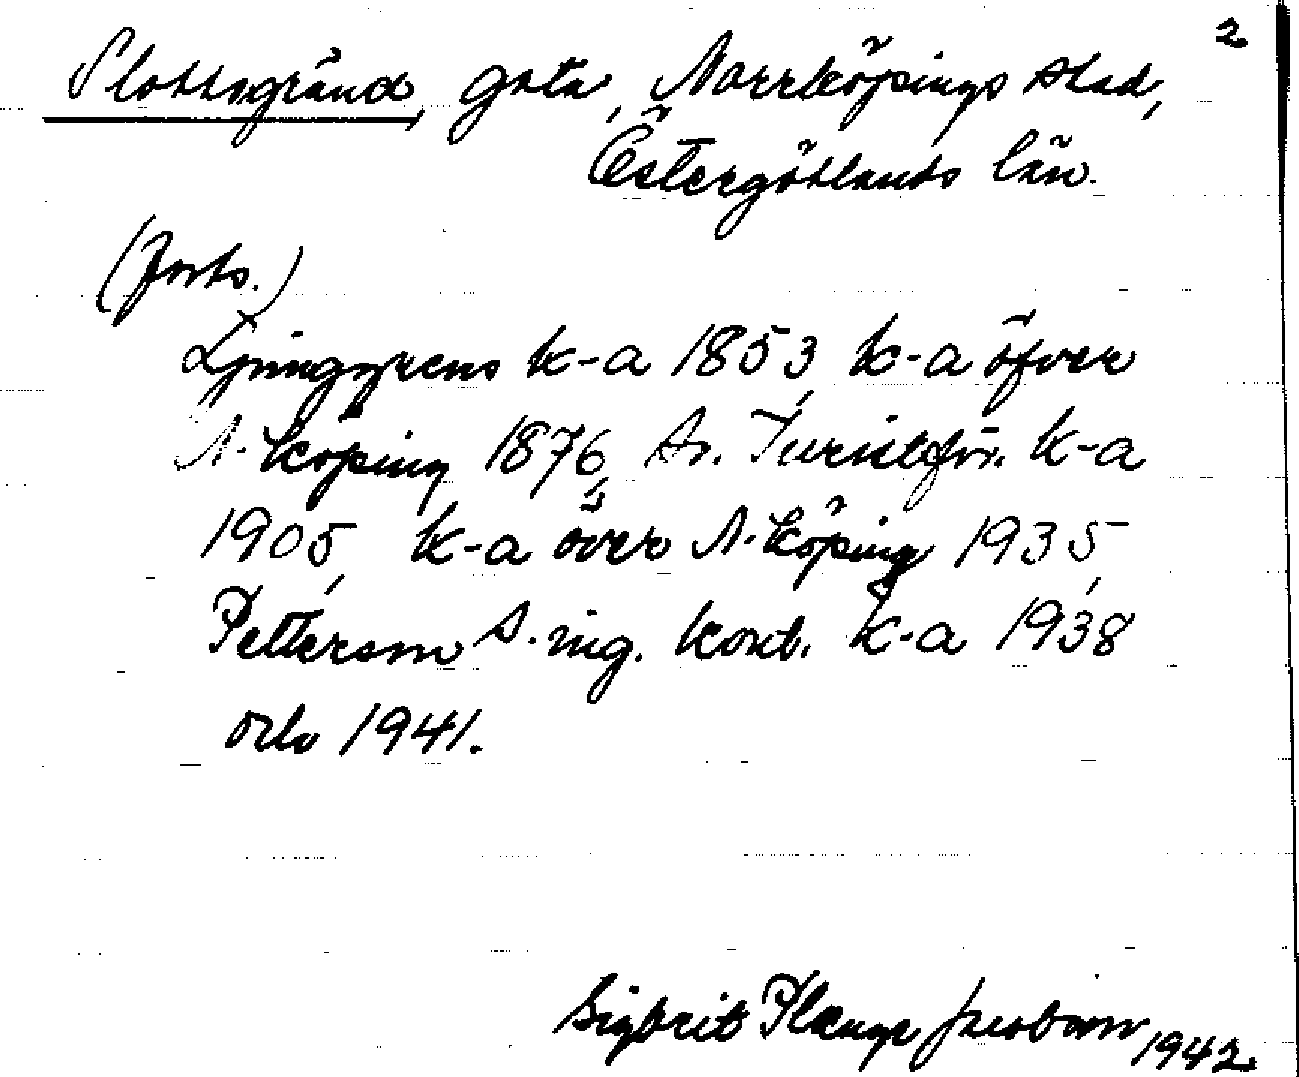 2
Slottsgränd, gata, Norrköpings stad,
Östergötlands län.
(forts.)
Ljunggrens k-a 1853, k-a öfver
N-köping 1876, Sv. Turistför. k-a
1905, k-a över N-köping 1935,
Petterson S. ing. kont. k-a 1938
och 1941.
Sigbrit Plænge Jacobson 1942